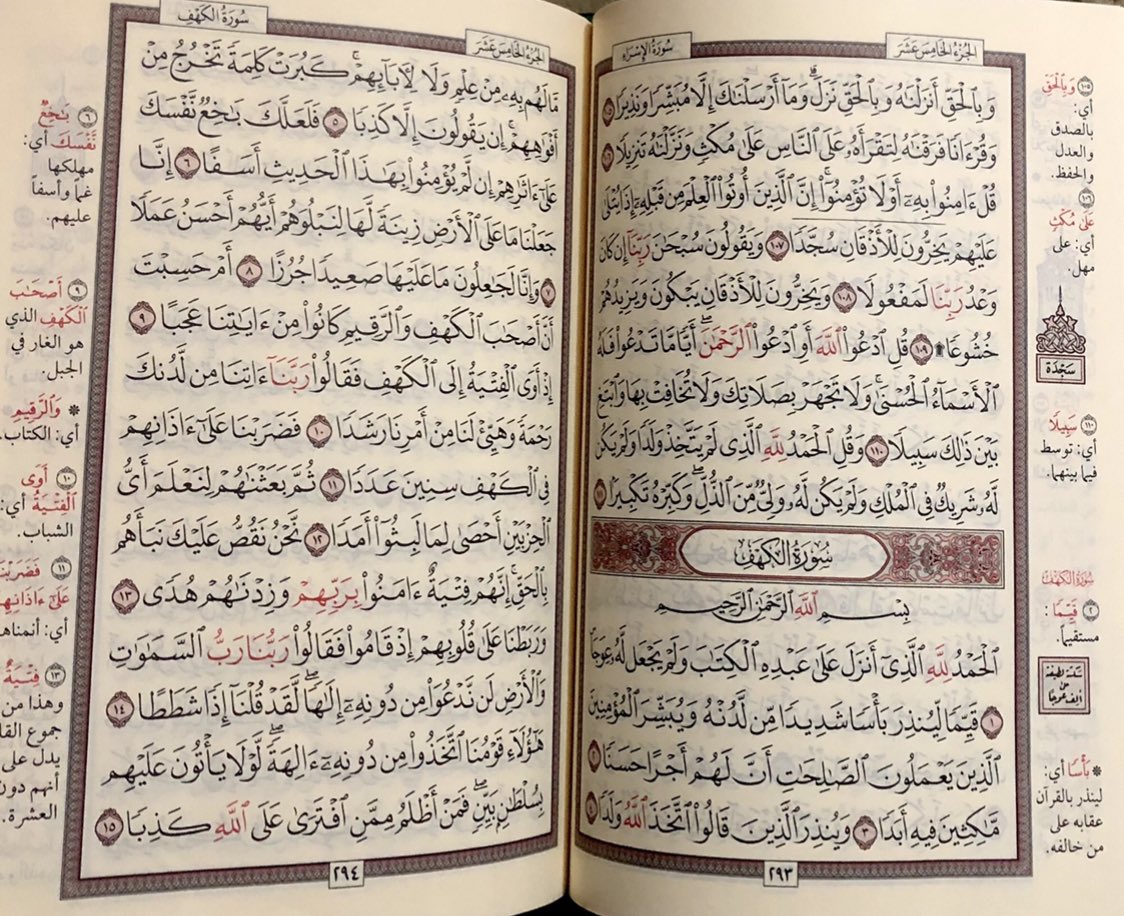 الجزء الخامس عشر
سورة الإسراء
وَبِٱلْحَقِّ أَنزَلْنَٰهُ وَبِٱلْحَقِّ نَزَلَ ۗ وَمَآ أَرْسَلْنَٰكَ إِلَّا مُبَشِّرًا وَنَذِيرًا ١٠٥
وَقُرْءَانًا فَرَقْنَٰهُ لِتَقْرَأَهُۥ عَلَى ٱلنَّاسِ عَلَىٰ مُكْثٍ وَنَزَّلْنَٰهُ تَنزِيلًا ١٠٦
قُلْ ءَامِنُوا۟ بِهِۦٓ أَوْ لَا تُؤْمِنُوٓا۟ ۚ إِنَّ ٱلَّذِينَ أُوتُوا۟ ٱلْعِلْمَ مِن قَبْلِهِۦٓ إِذَا يُتْلَىٰ
عَلَيْهِمْ يَخِرُّونَ لِلْأَذْقَانِ سُجَّدًا ١٠٧ وَيَقُولُونَ سُبْحَٰنَ رَبِّنَآ إِن كَانَ
وَعْدُ رَبِّنَا لَمَفْعُولًا ١٠٨ وَيَخِرُّونَ لِلْأَذْقَانِ يَبْكُونَ وَيَزِيدُهُمْ
خُشُوعًا ۩ ١٠٩ قُلِ ٱدْعُوا۟ ٱللَّهَ أَوِ ٱدْعُوا۟ ٱلرَّحْمَٰنَ ۖ أَيًّا مَّا تَدْعُوا۟ فَلَهُ
ٱلْأَسْمَآءُ ٱلْحُسْنَىٰ ۚ وَلَا تَجْهَرْ بِصَلَاتِكَ وَلَا تُخَافِتْ بِهَا وَٱبْتَغِ
بَيْنَ ذَٰلِكَ سَبِيلًا ١١٠ وَقُلِ ٱلْحَمْدُ لِلَّهِ ٱلَّذِى لَمْ يَتَّخِذْ وَلَدًا وَلَمْ يَكُن
لَّهُۥ شَرِيكٌ فِى ٱلْمُلْكِ وَلَمْ يَكُن لَّهُۥ وَلِىٌّ مِّنَ ٱلذُّلِّ ۖ وَكَبِّرْهُ تَكْبِيرًۢا ١١١
سُورَةُ الكَهْفِ
بِسْمِ ٱللَّهِ ٱلرَّحْمَٰنِ ٱلرَّحِيمِ
ٱلْحَمْدُ لِلَّهِ ٱلَّذِىٓ أَنزَلَ عَلَىٰ عَبْدِهِ ٱلْكِتَٰبَ وَلَمْ يَجْعَل لَّهُۥ عِوَجَاۜ
١ قَيِّمًا لِّيُنذِرَ بَأْسًا شَدِيدًا مِّن لَّدُنْهُ وَيُبَشِّرَ ٱلْمُؤْمِنِينَ
ٱلَّذِينَ يَعْمَلُونَ ٱلصَّٰلِحَٰتِ أَنَّ لَهُمْ أَجْرًا حَسَنًا ٢
مَّٰكِثِينَ فِيهِ أَبَدًا ٣ وَيُنذِرَ ٱلَّذِينَ قَالُوا۟ ٱتَّخَذَ ٱللَّهُ وَلَدًا ٤
٢٩٣
١٠٥ وَبِٱلْحَقِّ
أي:
بالصدق
والعدل
والحفظ.
١٠٦
عَلَىٰ مُكْثٍ
أي: على
مهل.
سَجْدَة
١١٠ سَبِيلًا
أي: توسط
فيما بينهما.
سُورَةُ الكَهْفِ
٢ قَيِّمًا:
مستقيماً.
سكتة لطيفة
على
ألف عوجا
* بَأْسًا أي:
لينذر بالقرآن
عقابه على
من خالفه.
سورة الكهف
الجزء الخامس عشر
مَّا لَهُم بِهِۦ مِنْ عِلْمٍ وَلَا لِءَابَآئِهِمْ ۚ كَبُرَتْ كَلِمَةً تَخْرُجُ مِنْ
أَفْوَٰهِهِمْ ۚ إِن يَقُولُونَ إِلَّا كَذِبًا ٥ فَلَعَلَّكَ بَٰخِعٌ نَّفْسَكَ
عَلَىٰٓ ءَاثَٰرِهِمْ إِن لَّمْ يُؤْمِنُوا۟ بِهَٰذَا ٱلْحَدِيثِ أَسَفًا ٦ إِنَّا
جَعَلْنَا مَا عَلَى ٱلْأَرْضِ زِينَةً لَّهَا لِنَبْلُوَهُمْ أَيُّهُمْ أَحْسَنُ عَمَلًا
٧ وَإِنَّا لَجَٰعِلُونَ مَا عَلَيْهَا صَعِيدًا جُرُزًا ٨ أَمْ حَسِبْتَ
أَنَّ أَصْحَٰبَ ٱلْكَهْفِ وَٱلرَّقِيمِ كَانُوا۟ مِنْ ءَايَٰتِنَا عَجَبًا ٩
إِذْ أَوَى ٱلْفِتْيَةُ إِلَى ٱلْكَهْفِ فَقَالُوا۟ رَبَّنَآ ءَاتِنَا مِن لَّدُنكَ
رَحْمَةً وَهَيِّئْ لَنَا مِنْ أَمْرِنَا رَشَدًا ١٠ فَضَرَبْنَا عَلَىٰٓ ءَاذَانِهِمْ
فِى ٱلْكَهْفِ سِنِينَ عَدَدًا ١١ ثُمَّ بَعَثْنَٰهُمْ لِنَعْلَمَ أَىُّ
ٱلْحِزْبَيْنِ أَحْصَىٰ لِمَا لَبِثُوٓا۟ أَمَدًا ١٢ نَّحْنُ نَقُصُّ عَلَيْكَ نَبَأَهُم
بِٱلْحَقِّ ۚ إِنَّهُمْ فِتْيَةٌ ءَامَنُوا۟ بِرَبِّهِمْ وَزِدْنَٰهُمْ هُدًى ١٣
وَرَبَطْنَا عَلَىٰ قُلُوبِهِمْ إِذْ قَامُوا۟ فَقَالُوا۟ رَبُّنَا رَبُّ ٱلسَّمَٰوَٰتِ
وَٱلْأَرْضِ لَن نَّدْعُوَا۟ مِن دُونِهِۦٓ إِلَٰهًا ۖ لَّقَدْ قُلْنَآ إِذًا شَطَطًا ١٤
هَٰٓؤُلَآءِ قَوْمُنَا ٱتَّخَذُوا۟ مِن دُونِهِۦٓ ءَالِهَةً ۖ لَّوْلَا يَأْتُونَ عَلَيْهِم
بِسُلْطَٰنٍۭ بَيِّنٍ ۖ فَمَنْ أَظْلَمُ مِمَّنِ ٱفْتَرَىٰ عَلَى ٱللَّهِ كَذِبًا ١٥
٢٩٤
٦ بَٰخِعٌ
نَّفْسَكَ أي:
مهلكها
غماً وأسفاً
عليهم.
٩ أَصْحَٰبَ
ٱلْكَهْفِ الذي
هو الغار في
الجبل.
* وَٱلرَّقِيمِ
أي: الكتاب.
١٠ أَوَى
ٱلْفِتْيَةُ أي:
الشباب.
١١ فَضَرَبْنَا
عَلَىٰٓ ءَاذَانِهِمْ
أي: أنمناهم
١٣ فِتْيَةٌ
وهذا من
جموع القلة
يدل على
أنهم دون
العشرة.